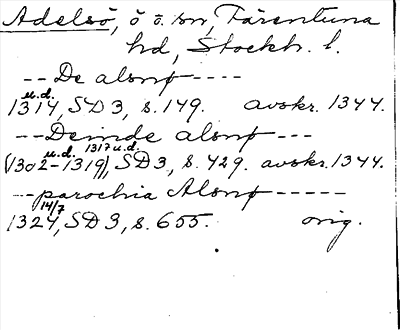 Adelsö, ö o. sn, Färentuna
hd, Stockh. l.
-- De alsnø ----
u.d.
1314, SD 3, s. 149. avskr. 1344.
-- Deinde alsnø ---
u.d. 1317 u.d.
(1302-1319), SD 3, s. 429. avskr. 1344.
-- parochia Alsnø -----
14/7
1324, SD 3, s. 655. orig.